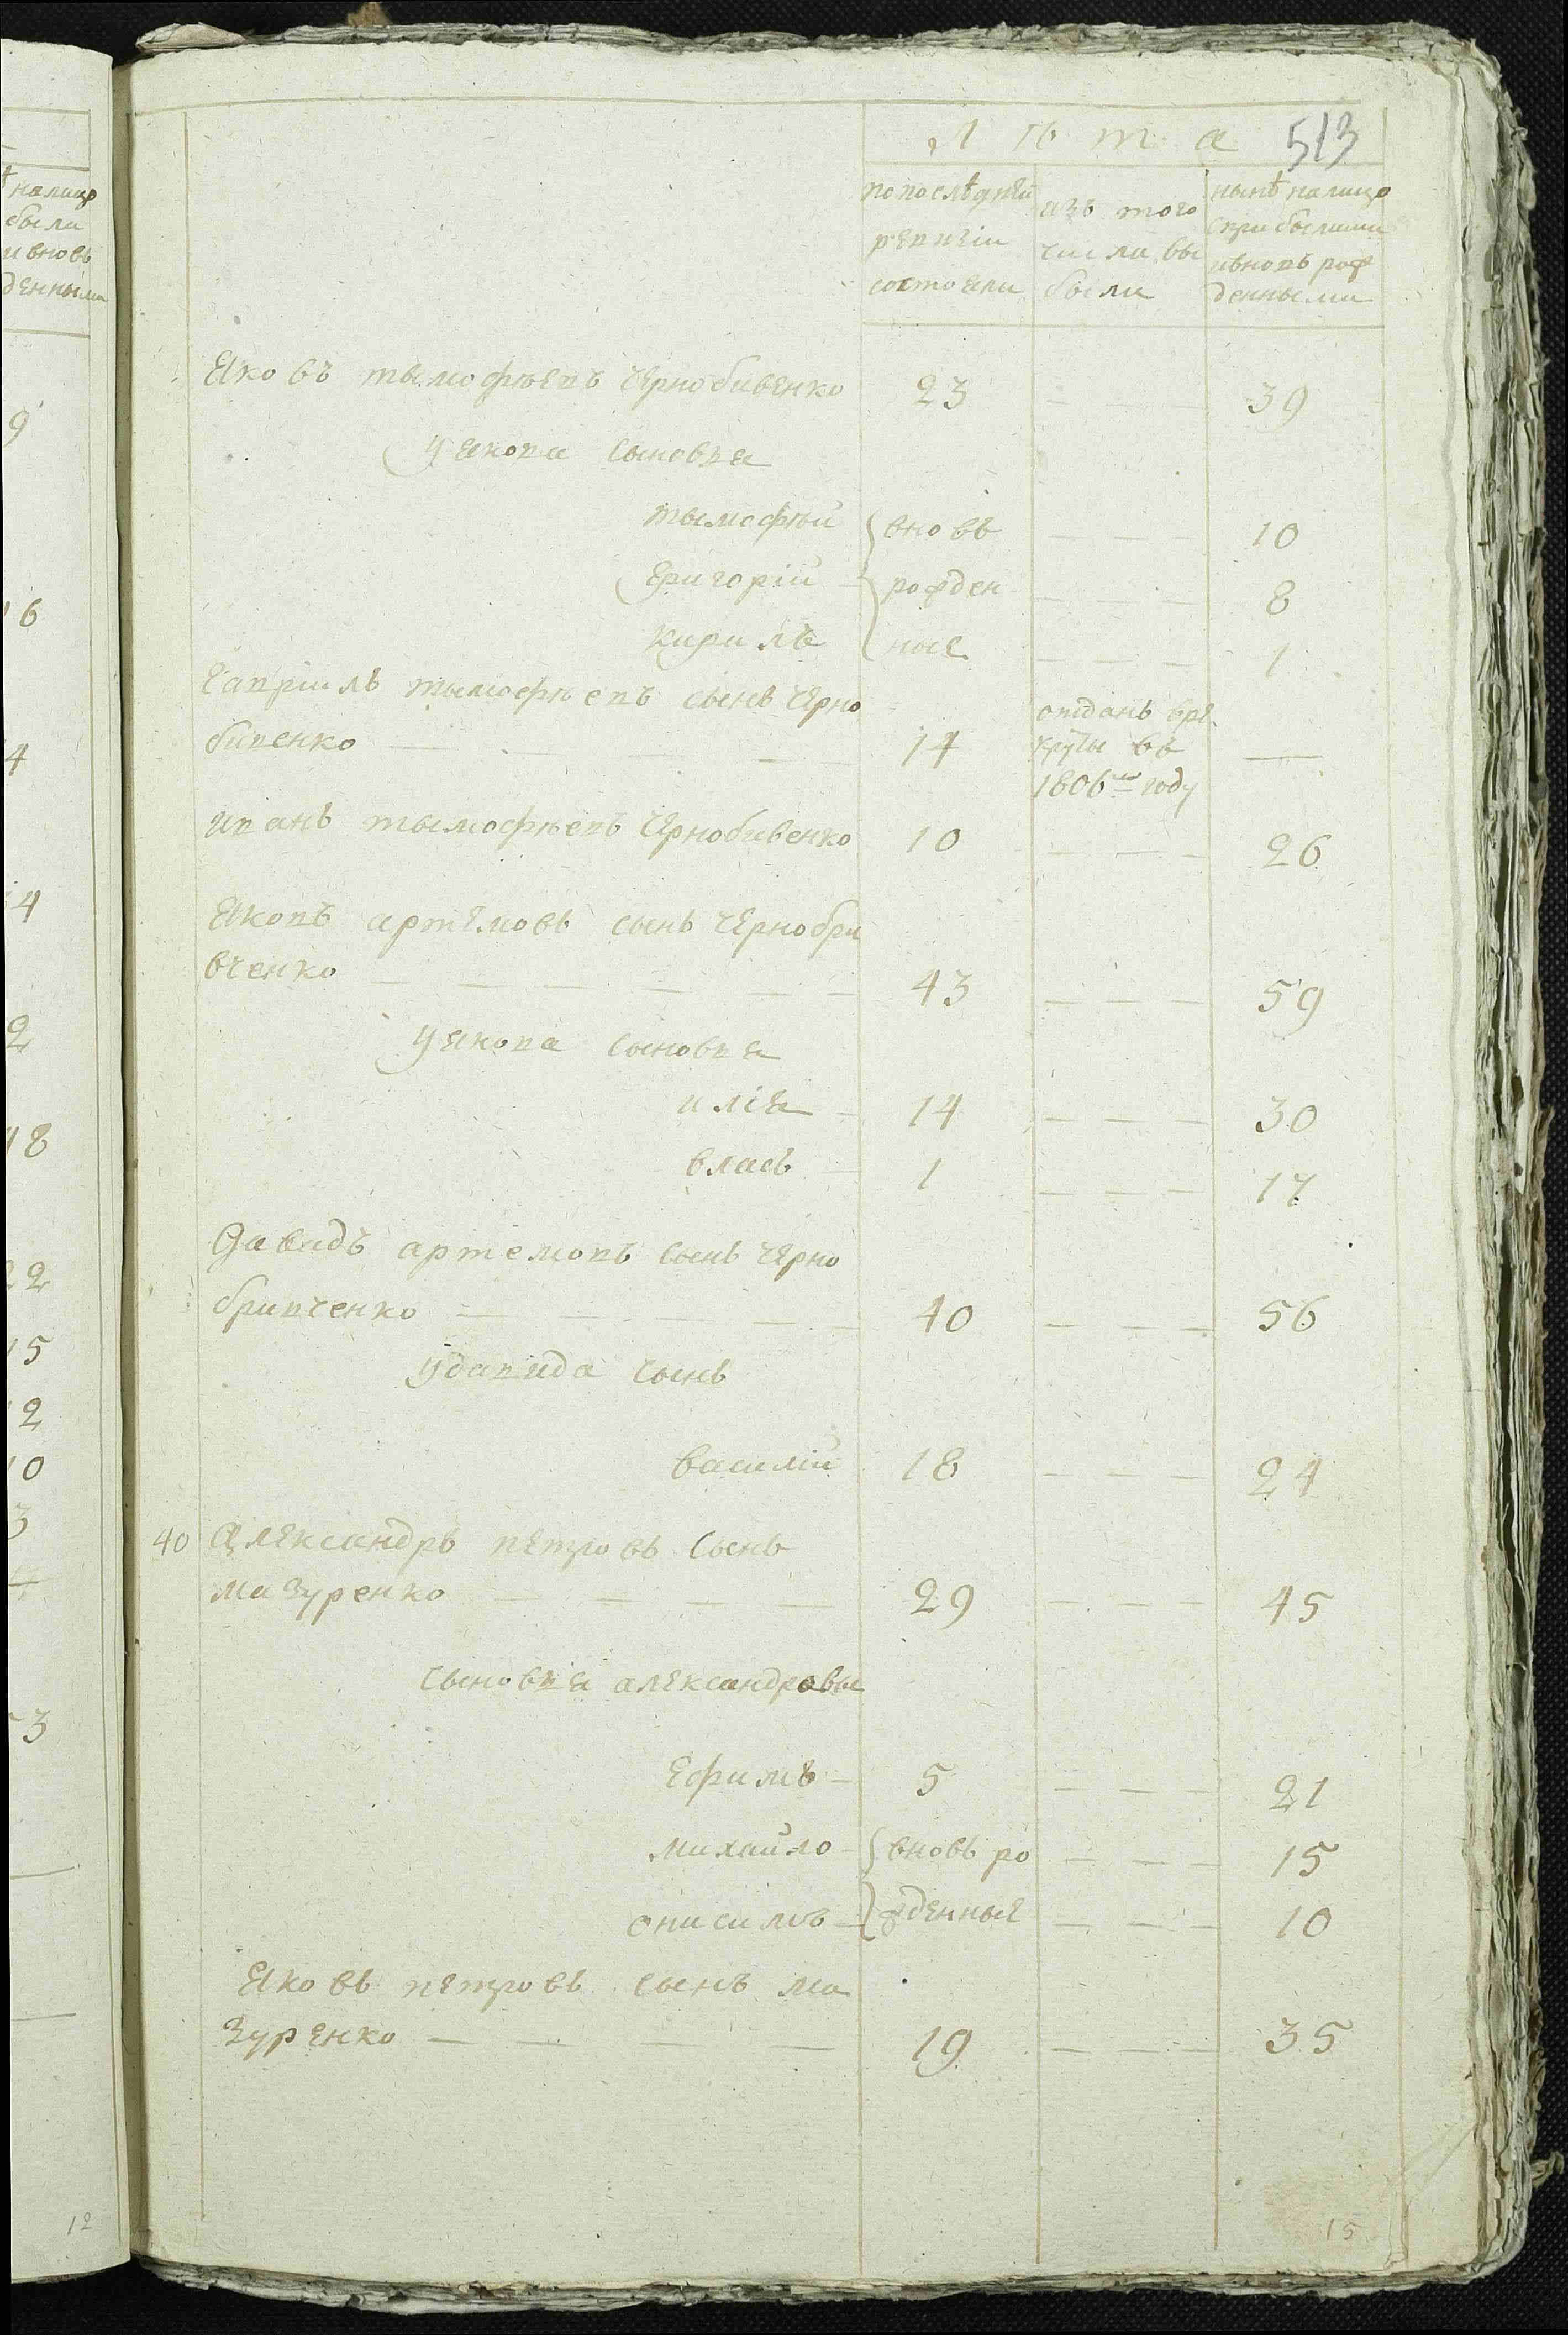 Лѣта 513
по послѣдней
ревизіи
состояли
изъ того
числа вы
были
нынѣ налицо
с прибылыми
и вновь рож
денными
Яковъ тымофѣевъ чернобивенко 23 — — — 39
у якова сыновья
тымофѣй вновь — — — 10
григорій рожден — — — 8
кирилъ ные — — — 1
гавріилъ тымофѣевъ сынъ черно
бивенко — — — — 14 —
отданъ врѣ
круты въ
1806м году
иванъ тымофѣевъ чернобивенко 10 — — — 26
Яковъ артемовъ сынъ чернобри
вченко — — — — — — 43 — — — 59
у якова сыновья
илія — 14 — — — 30
власъ — 1 — — — 17
Давидъ артемовъ сынъ черно
бривченко — — — — — 40 — — — 56
у давида сынъ
василій 18 — — — 24
40 Александръ петровъ сынъ
мазуренко — — — — 29 — — — 45
сыновья александровы
ефимъ — 5 — — — 21
михайло — вновь ро — — — 15
онисимъ — жденные — — — 10
Яковъ петровъ сынъ ма
зуренко — — — — 19 — — — 35
15
налицо
были
и вновь
денными
9
16
4
4
2
18
22
15
12
10
3
3
12